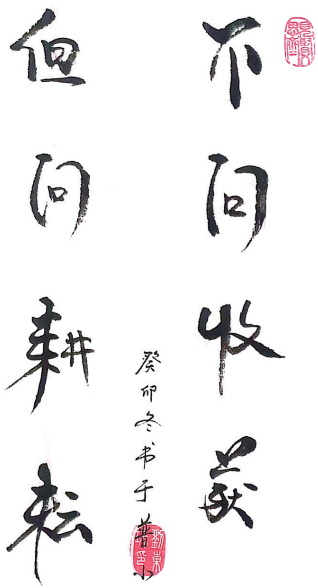 不问收获
但问耕耘
癸卯冬书于普小